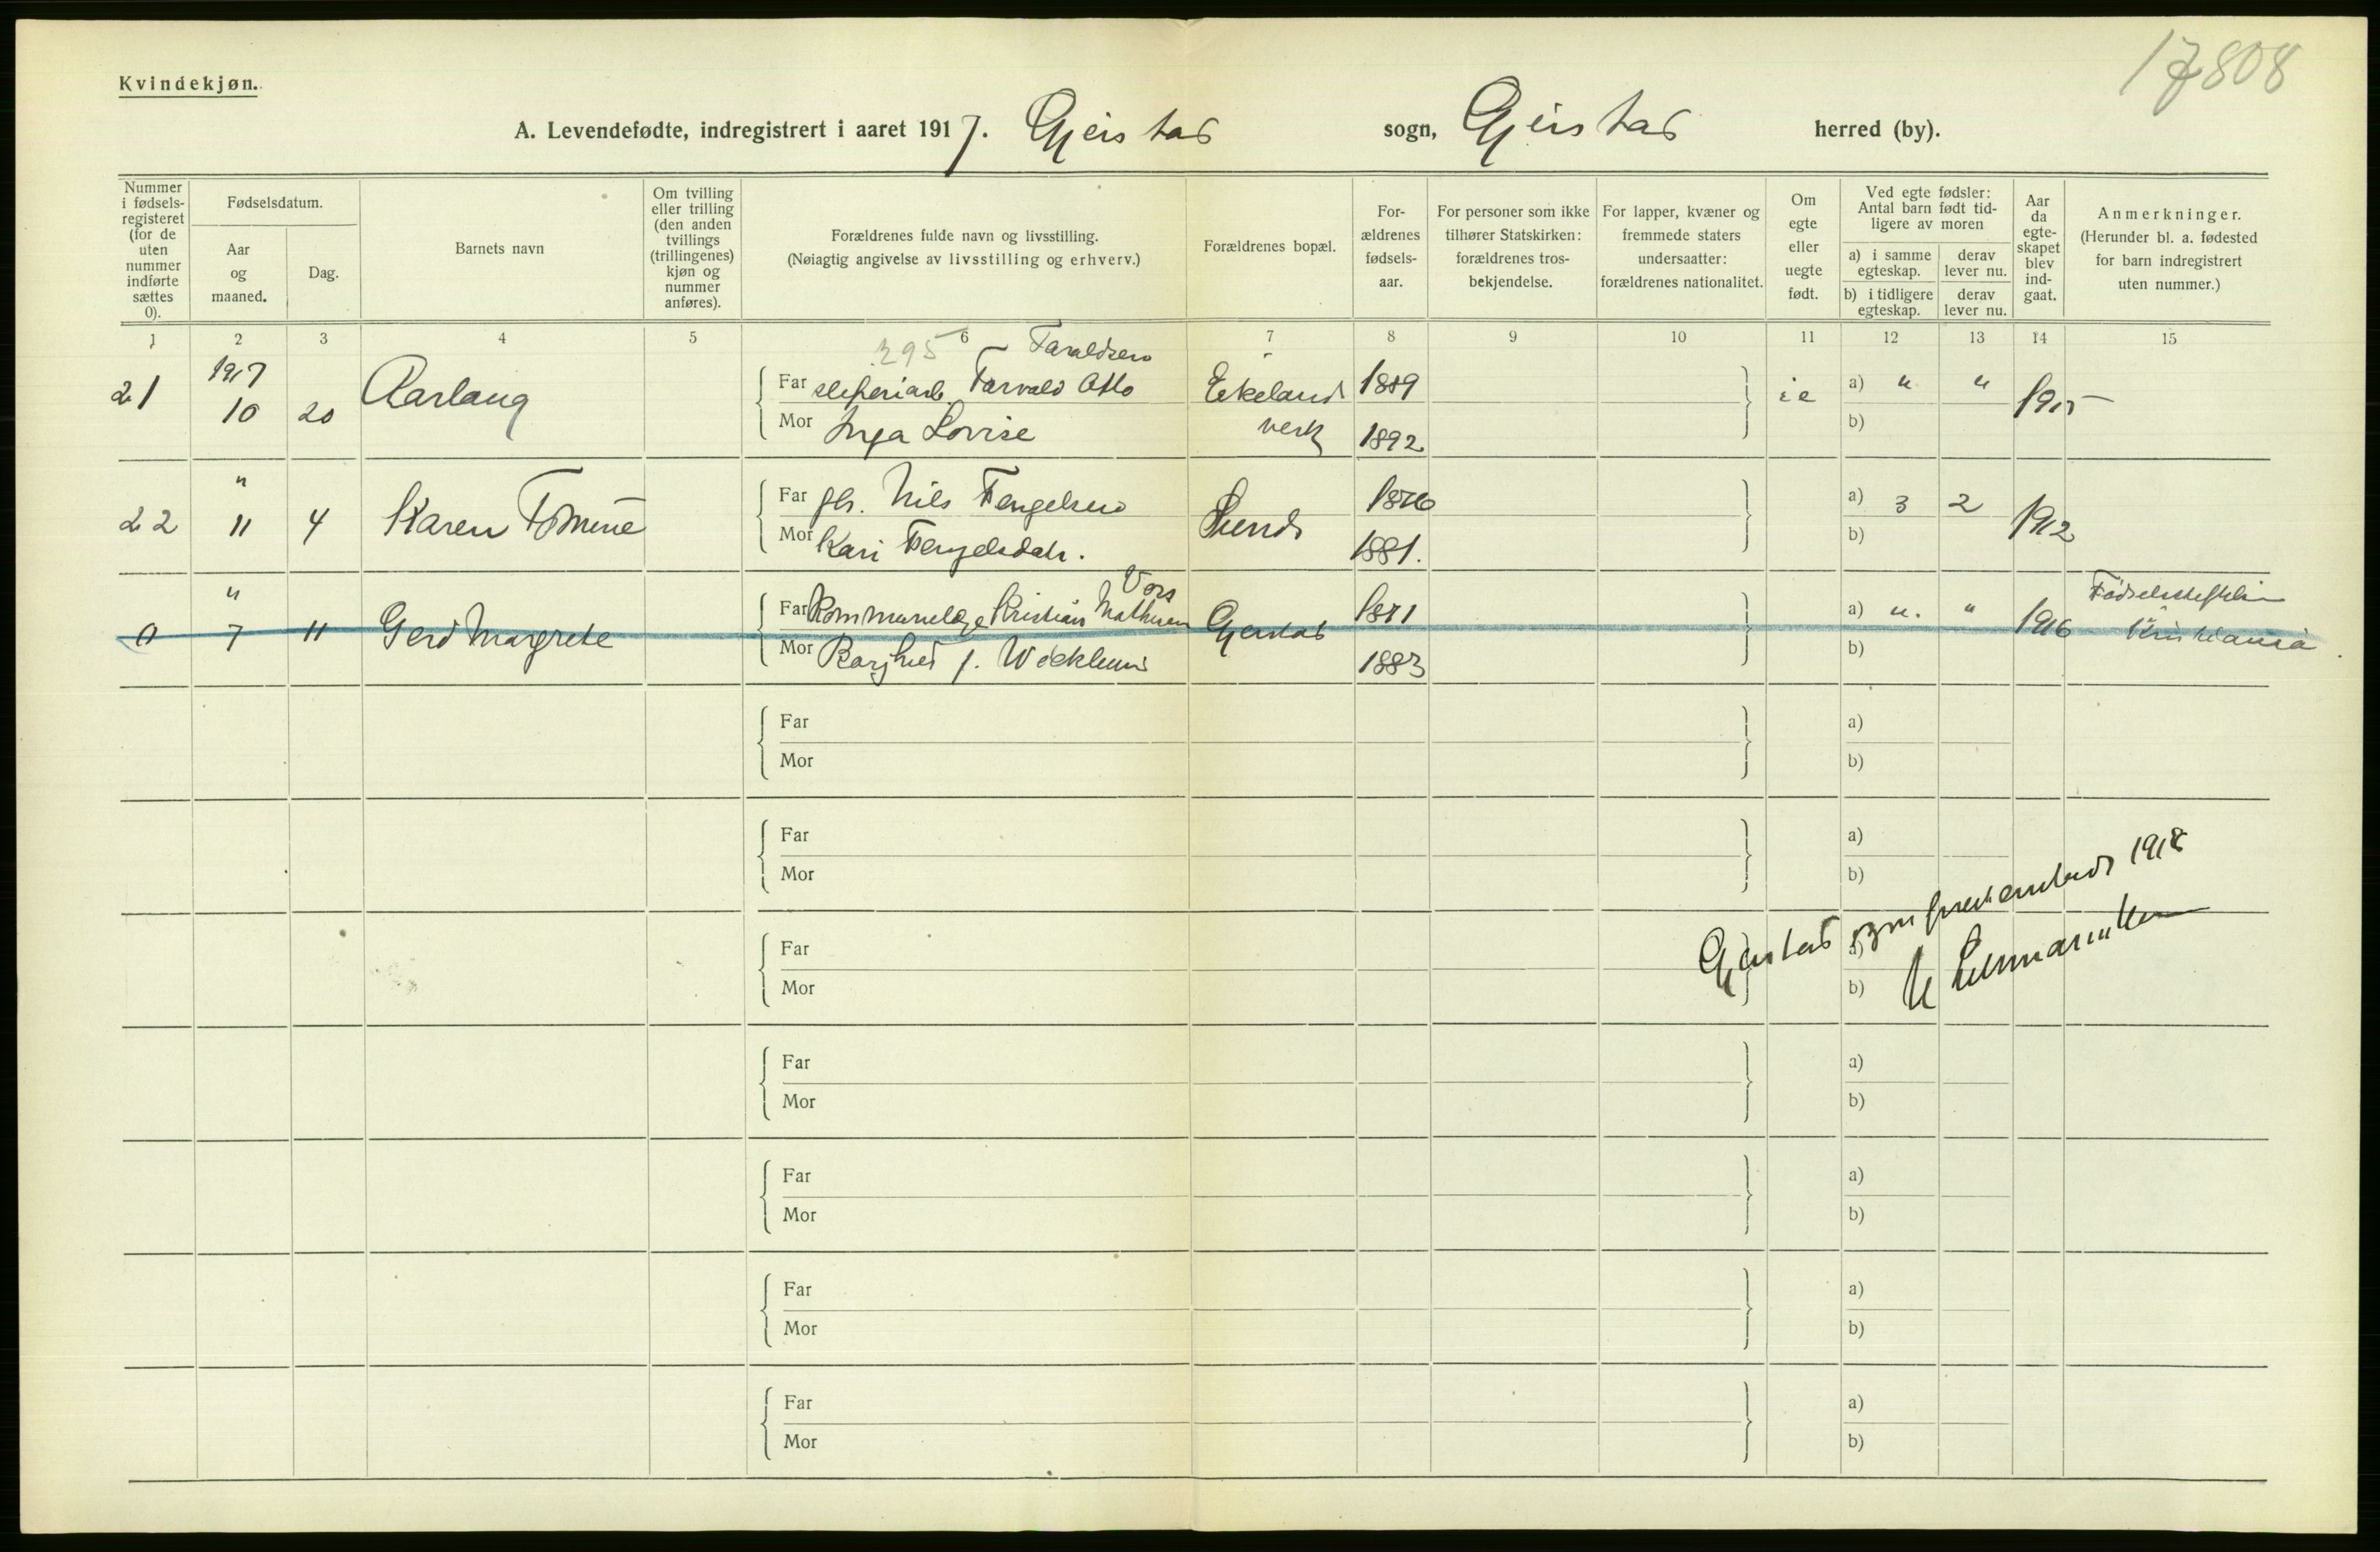 17808
Kvindekjøn.
A. Levendefødte, indregistrert i aaret 1917. Gjerstad sogn, Gjerstad herred (by).
Nummer i fødsels-registeret (for de uten nummer indførte sættes 0).
Fødselsdatum.
Aar og maaned.
Dag.
Barnets navn
Om tvilling eller trilling (den anden tvillings (trillingenes) kjøn og nummer anføres).
Forældrenes fulde navn og livsstilling.
(Nøiagtig angivelse av livsstilling og erhverv.)
Forældrenes bopæl.
For-ældrenes fødsels-aar.
For personer som ikke tilhører Statskirken: forældrenes tros-bekjendelse.
For lapper, kvæner og fremmede staters undersaatter: forældrenes nationalitet.
Om egte eller uegte født.
Ved egte fødsler: Antal barn født tid-ligere av moren
a) i samme egteskap.
derav lever nu.
b) i tidligere egteskap.
derav lever nu.
Aar da egte-skapet blev ind-gaat.
Anmerkninger.
(Herunder bl. a. fødested for barn indregistrert uten nummer.)
1 2 3 4 5 6 7 8 9 10 11 12 13 14 15
295 Taraldsen
21 1917 10 20 Aarlaug Far Torvald Otto Eikeland 1889 a) " " 1915
Mor Inga Lovise verk 1892 b)
22 " 11 4 Karen Tomine Far gbr. Nils Tengelsen 1876 a) 3 2 1912
Mor Kari Tengelsdatr. 1881. b)
Vors
0 " 7 11 Gerd Margrete Far Kommunelæge Kristian Mathisen Gjerstad 1871 a) " " 1916 Kristiania
Mor Borghild f. 1883 b)
Far a)
Mor b)
Far a)
Mor b)
Far a)
Mor b)
Gjerstad 1918
Far a)
Mor b)
Far a)
Mor b)
Far a)
Mor b)
Far a)
Mor b)